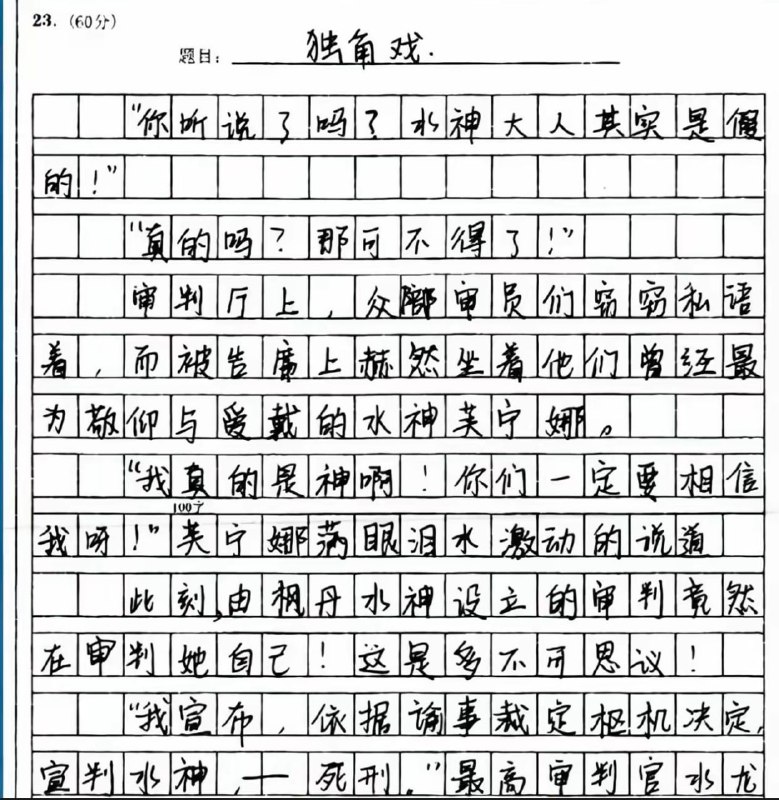 23. (60分)
题目: 独角戏.
"你听说了吗?水神大人其实是假
的!"
"真的吗?那可不得了!"
审判厅上,众陪审员们窃窃私语
着,而被告席上赫然坐着他们曾经最
为敬仰与爱戴的水神芙宁娜。
"我真的是神啊!你们一定要相信
100字
我呀!"芙宁娜满眼泪水激动的说道
此刻,由枫丹水神设立的审判竟然
在审判她自己!这是多不可思议!
"我宣布,依据谕事裁定枢机决定,
宣判水神,——死刑。"最高审判官水龙